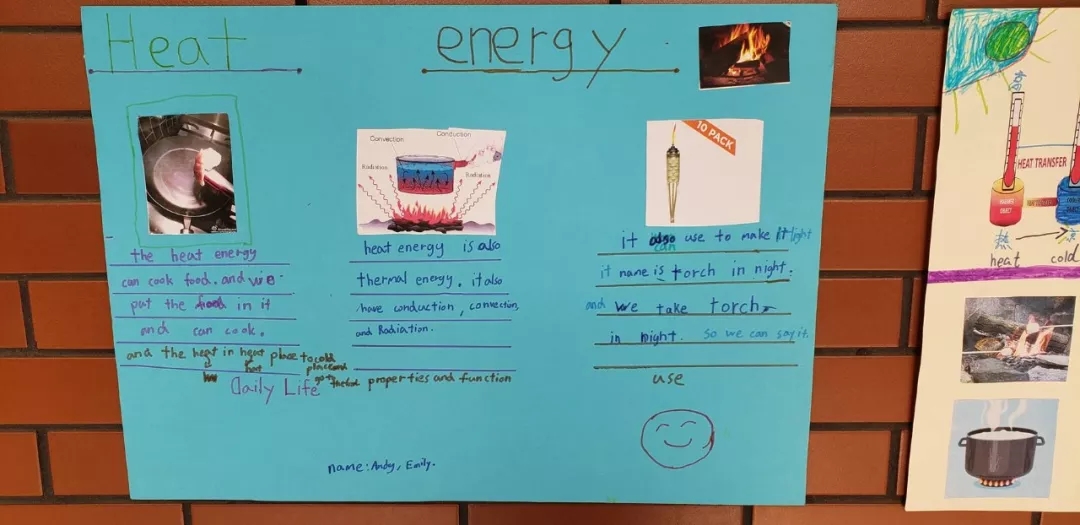 Heat energy
the heat energy
can cook food. and we
put the food in it
and can cook.
and the heat in heat place to cold
place and
hot
go to
the food
Daily Life
Convection
Conduction
Radiation
Radiation
heat energy is also
thermal energy. it also
have conduction, convection,
and Radiation.
properties and function
10 PACK
it can use to make it light
it name is torch in night.
and we take torch
in night. so we can say it.
use
name: Andy, Emily.
HEAT TRANSFER
热
heat
cold